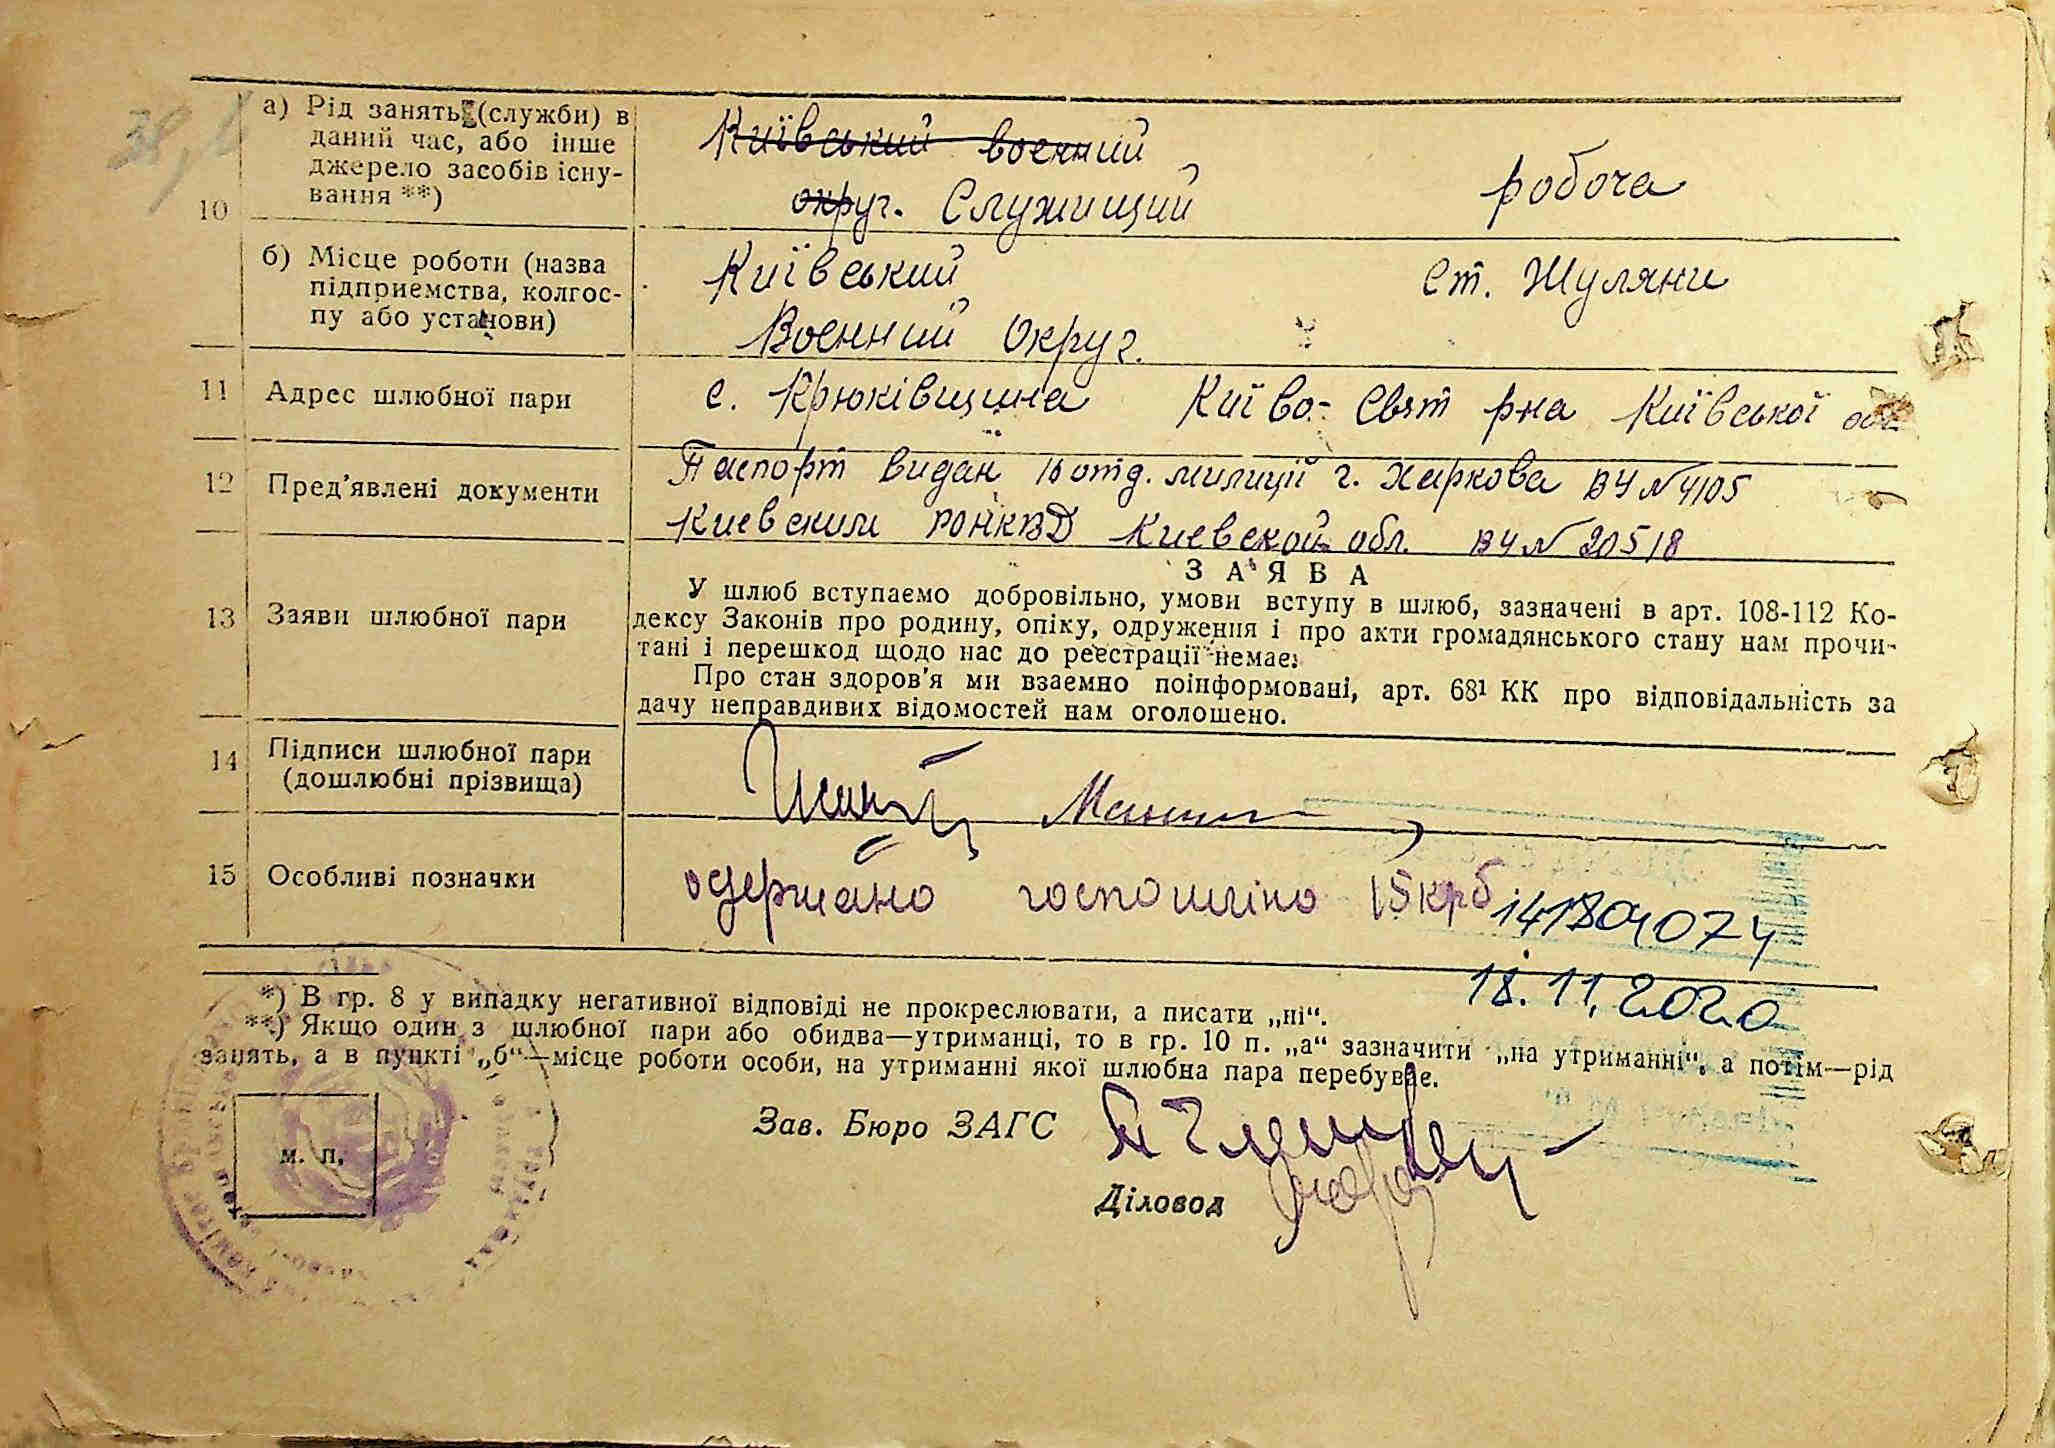 10
а) Рід занять (служби) в
даний час, або інше
джерело засобів існу-
вання **)
Київський военний
округ. Служищий
робоча
б) Місце роботи (назва
підприємства, колгос-
пу або установи)
Київський
Военний Округ.
Ст. Жуляни
11 Адрес шлюбної пари
с. Крюківщина Київо-Свят рна Київської
12 Пред'явлені документи
Паспорт видан 16 отд. милиції г. Харкова ВЧ № 4105
Киевским РОНКВД Киевской обл. ВЧ № 20518
13 Заяви шлюбної пари
ЗАЯВА
У шлюб вступаємо добровільно, умови вступу в шлюб, зазначені в арт. 108-112 Ко-
дексу Законів про родину, опіку, одруження і про акти громадянського стану нам прочи-
тані і перешкод щодо нас до реєстрації немає.
Про стан здоров'я ми взаємно поінформовані, арт. 68¹ КК про відповідальність за
дачу неправдивих відомостей нам оголошено.
14 Підписи шлюбної пари
(дошлюбні прізвища)
15 Особливі позначки
одержано госпошліно 15 крб
18.11.2020
*) В гр. 8 у випадку негативної відповіді не прокреслювати, а писати „ні“.
**) Якщо один з шлюбної пари або обидва—утриманці, то в гр. 10 п. „а“ зазначити „на утриманні“, а потім—рід
занять, а в пункті „б“—місце роботи особи, на утриманні якої шлюбна пара перебуває.
Зав. Бюро ЗАГС
м. п.
Діловод